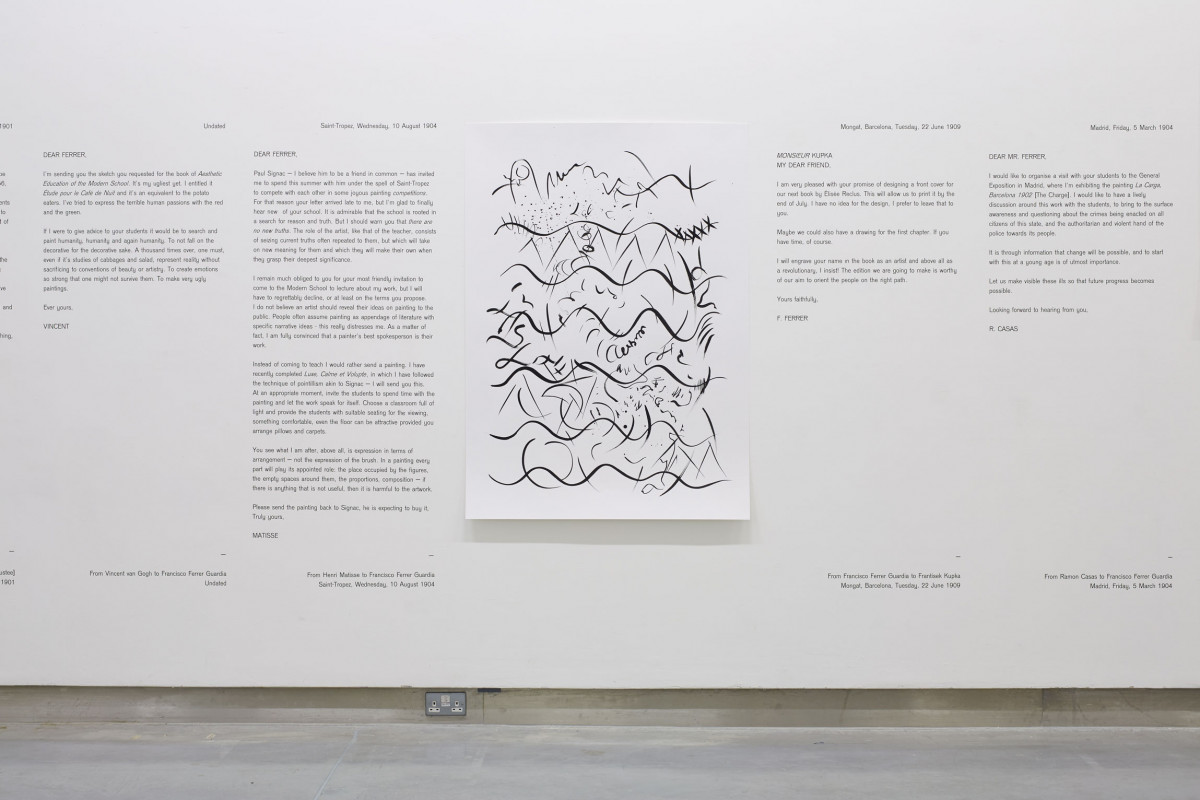 1901
Undated
DEAR FERRER,
I'm sending you the sketch you requested for the book of Aesthetic
Education of the Modern School. It's my ugliest yet. I entitled it
Étude pour le Café de Nuit and it's an equivalent to the potato
eaters. I've tried to express the terrible human passions with the red
and the green.
If I were to give advice to your students it would be to search and
paint humanity, humanity and again humanity. To not fall on the
decorative for the decorative sake. A thousand times over, one must,
even if it's studies of cabbages and salad, represent reality without
sacrificing to conventions of beauty or artistry. To create emotions
so strong that one might not survive them. To make very ugly
paintings.
Ever yours,
VINCENT
—
From Vincent van Gogh to Francisco Ferrer Guardia
Undated
Saint-Tropez, Wednesday, 10 August 1904
DEAR FERRER,
Paul Signac — I believe him to be a friend in common — has invited
me to spend this summer with him under the spell of Saint-Tropez
to compete with each other in some joyous painting competitions.
For that reason your letter arrived late to me, but I'm glad to finally
hear new of your school. It is admirable that the school is rooted in
a search for reason and truth. But I should warn you that there are
no new truths. The role of the artist, like that of the teacher, consists
of seizing current truths often repeated to them, but which will take
on new meaning for them and which they will make their own when
they grasp their deepest significance.
I remain much obliged to you for your most friendly invitation to
come to the Modern School to lecture about my work, but I will
have to regrettably decline, or at least on the terms you propose.
I do not believe an artist should reveal their ideas on painting to the
public. People often assume painting as appendage of literature with
specific narrative ideas - this really distresses me. As a matter of
fact, I am fully convinced that a painter's best spokesperson is their
work.
Instead of coming to teach I would rather send a painting. I have
recently completed Luxe, Calme et Volupte, in which I have followed
the technique of pointillism akin to Signac — I will send you this.
At an appropriate moment, invite the students to spend time with the
painting and let the work speak for itself. Choose a classroom full of
light and provide the students with suitable seating for the viewing,
something comfortable, even the floor can be attractive provided you
arrange pillows and carpets.
You see what I am after, above all, is expression in terms of
arrangement — not the expression of the brush. In a painting every
part will play its appointed role: the place occupied by the figures,
the empty spaces around them, the proportions, composition — if
there is anything that is not useful, then it is harmful to the artwork.
Please send the painting back to Signac, he is expecting to buy it.
Truly yours,
MATISSE
—
From Henri Matisse to Francisco Ferrer Guardia
Saint-Tropez, Wednesday, 10 August 1904
Mongat, Barcelona, Tuesday, 22 June 1909
MONSIEUR KUPKA
MY DEAR FRIEND,
I am very pleased with your promise of designing a front cover for
our next book by Elisée Reclus. This will allow us to print it by the
end of July. I have no idea for the design, I prefer to leave that to
you.
Maybe we could also have a drawing for the first chapter. If you
have time, of course.
I will engrave your name in the book as an artist and above all as
a revolutionary, I insist! The edition we are going to make is worthy
of our aim to orient the people on the right path.
Yours faithfully,
F. FERRER
—
From Francisco Ferrer Guardia to Frantisek Kupka
Mongat, Barcelona, Tuesday, 22 June 1909
Madrid, Friday, 5 March 1904
DEAR MR. FERRER,
I would like to organise a visit with your students to the General
Exposition in Madrid, where I'm exhibiting the painting La Carga,
Barcelona 1902 [The Charge]. I would like to have a lively
discussion around this work with the students, to bring to the surface
awareness and questioning about the crimes being enacted on all
citizens of this state, and the authoritarian and violent hand of the
police towards its people.
It is through information that change will be possible, and to start
with this at a young age is of utmost importance.
Let us make visible these ills so that future progress becomes
possible.
Looking forward to hearing from you,
R. CASAS
—
From Ramon Casas to Francisco Ferrer Guardia
Madrid, Friday, 5 March 1904